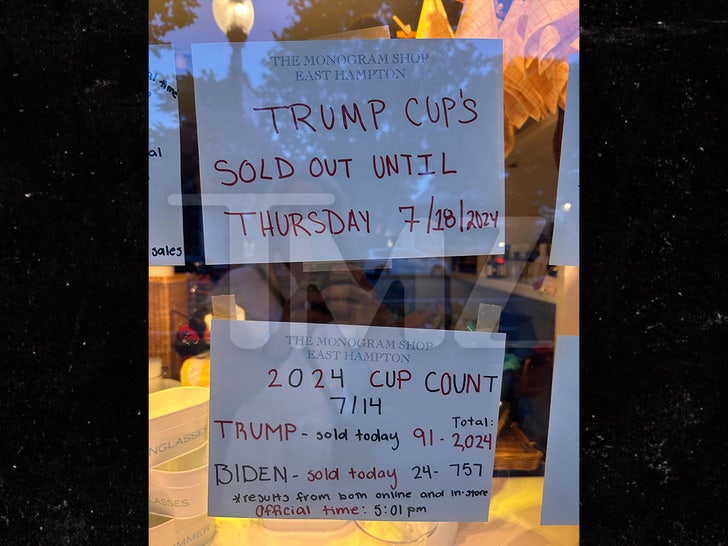 al time
al
sales
THE MONOGRAM SHOP
EAST HAMPTON
TRUMP CUP'S
SOLD OUT UNTIL
THURSDAY 7/18/2024
TMZ
THE MONOGRAM SHOP
EAST HAMPTON
2024 CUP COUNT
7/14
Total:
TRUMP - sold today 91 - 2,024
BIDEN - sold today 24 - 757
*results from both online and in-store
Official time: 5:01 pm
NGLASSES
ASSES
MMER